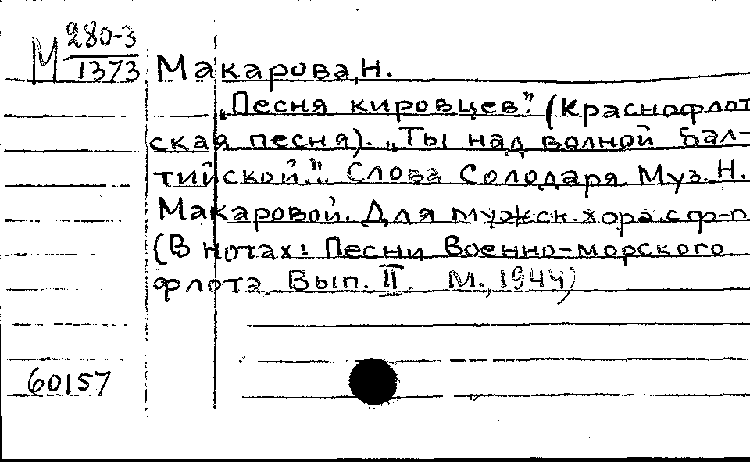 М 280-3
1373
Макарова, Н.
„Песня кировцев." (Краснофлот
ская песня). „Ты над волной Бал-
тийской.". Слова Солодаря Муз. Н.
Макаровой. Для мужск. хора с ф-п
(В нотах: Песни Военно-морского
флота. Вып. II. М., 1944)
60157